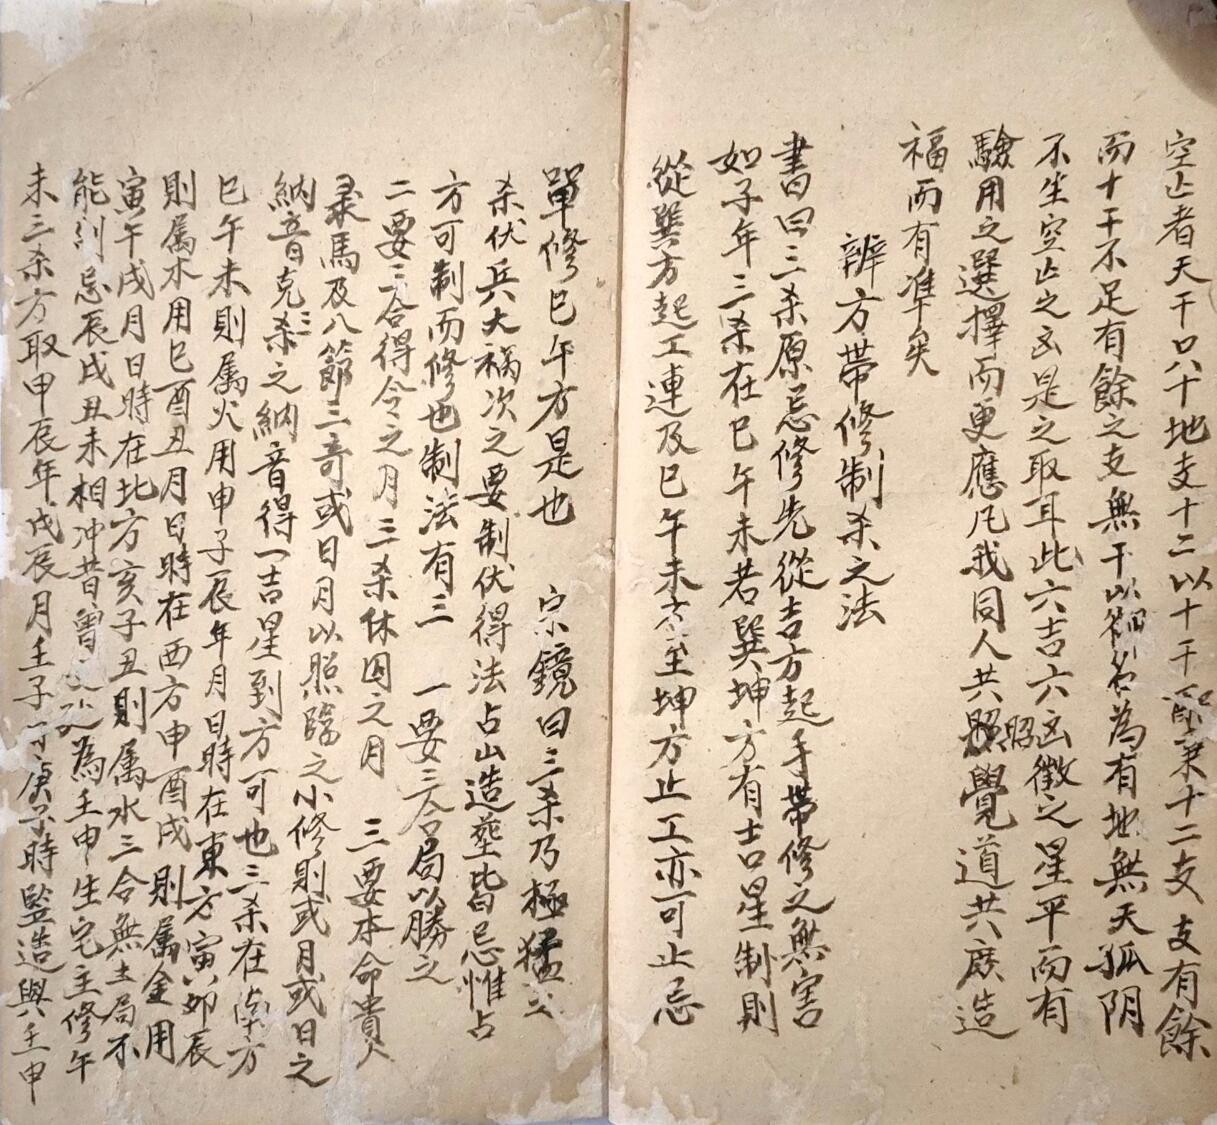 空亡者天干只十地支十二以十干配乘十二支支有餘
而十干不足有餘之支無干以爲有地無天孤阴
不生空亡之凶是之取耳此六吉六凶徵之星平而有
驗用之選擇而更應凡我同人共照覺道共庶造
福而有准矣
辦方帶修制杀之法
書曰三杀原忌修先從吉方起手帶修之無害
如子年三杀在巳午未若巽坤方有吉星制則
從巽方起工連及巳午未方至坤方止工亦可止忌
單修巳午方是也 宗鏡曰三杀乃極猛之
杀伏兵大禍次之要制伏得法占山造塟皆忌惟占
方可制而修也制法有三 一要三合局以勝之
二要三合得令之月三杀休囚之月 三要本命貴人
彔馬及八節三竒或日月以照臨之小修則或月或日之
納音克三杀之納音得一吉星到方可也三杀在南方
巳午未則属火用申子辰年月日時在東方寅卯辰
則属木用巳酉丑月日時在西方申酉戌則属金用
寅午戌月日時在北方亥子丑則属水三合無土局不
能制忌辰戌丑未相冲昔曾文辿為壬申生宅主修午
未三杀方取申辰年戊辰月壬子日庚子時監造與壬申